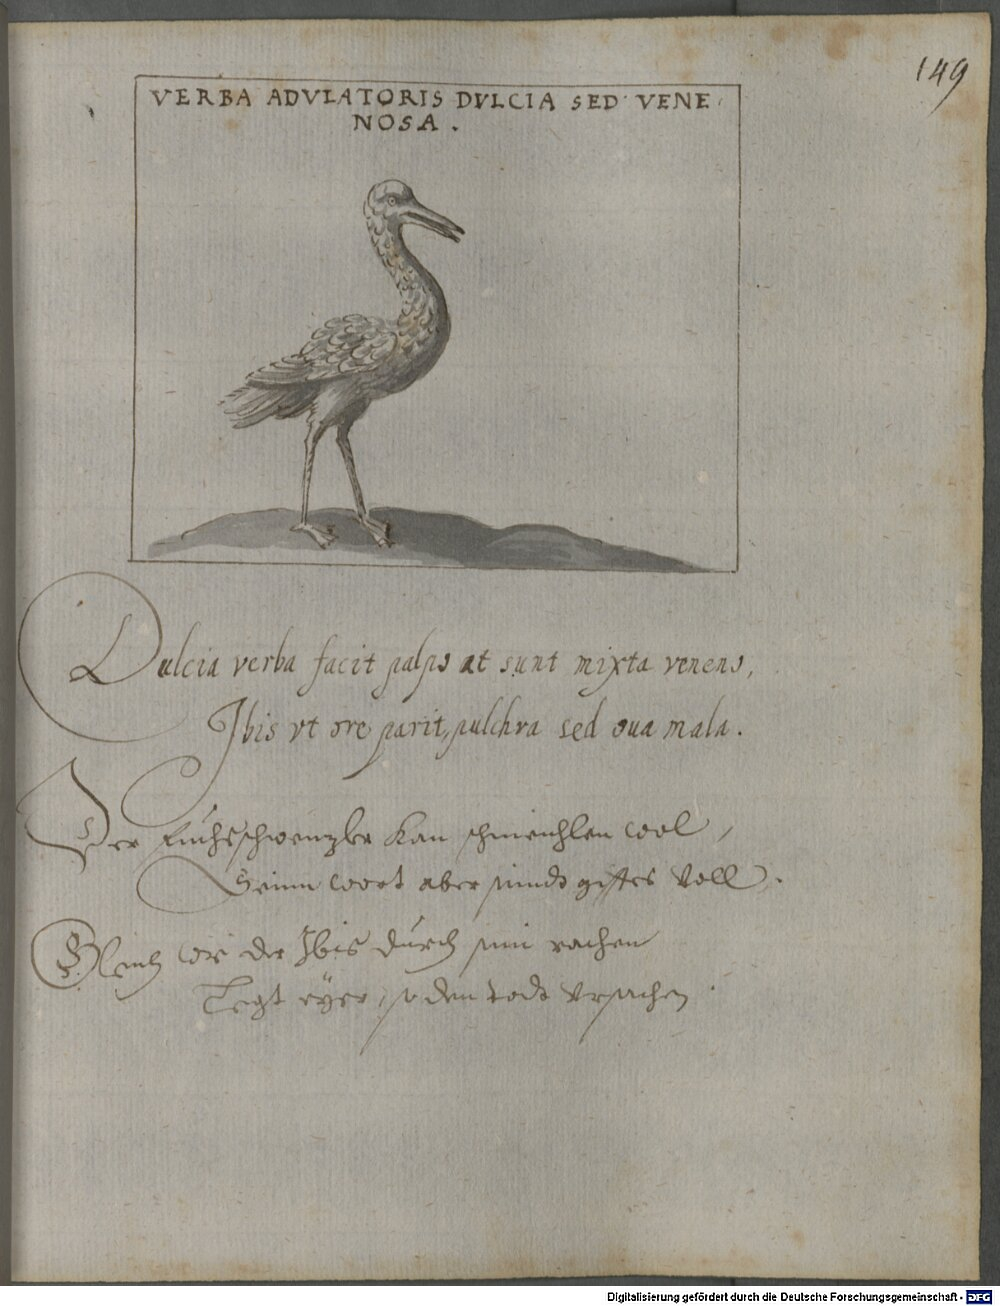 149
VERBA ADVLATORIS DVLCIA SED VENE
NOSA.
Dulcia verba facit palpo at sunt mixta veneno,
Ibis vt ore parit, pulchra sed oua mala.
Der fuchsschwentzler kan schmeichlen wol,
Seinn wort aber seindt gifftes voll.
Gleich wie der Ibis durch sein rachen
Legt eÿer, so den todt vrsachen
Digitalisierung gefördert durch die Deutsche Forschungsgemeinschaft - DFG